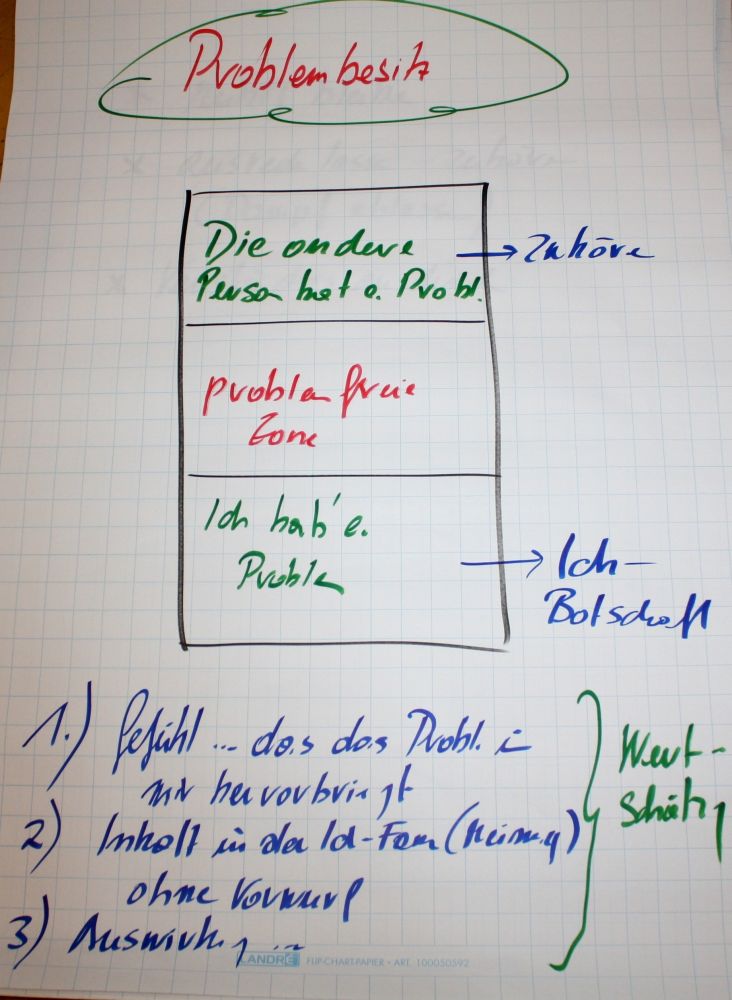 Problembesitz
Die andere → Zuhöre
Person hat e. Probl.
problemfreie
Zone
Ich hab' e.
Problem
→ Ich-
Botschaft
1.) Gefühl ... das das Probl. in
mir hervorbringt
Wert-
schätzg
2) Inhalt in der Ich-Form (Meinung)
ohne Vorwurf
3) Auswirkung ...
LANDRÉ FLIP-CHART-PAPIER • ART. 100050592